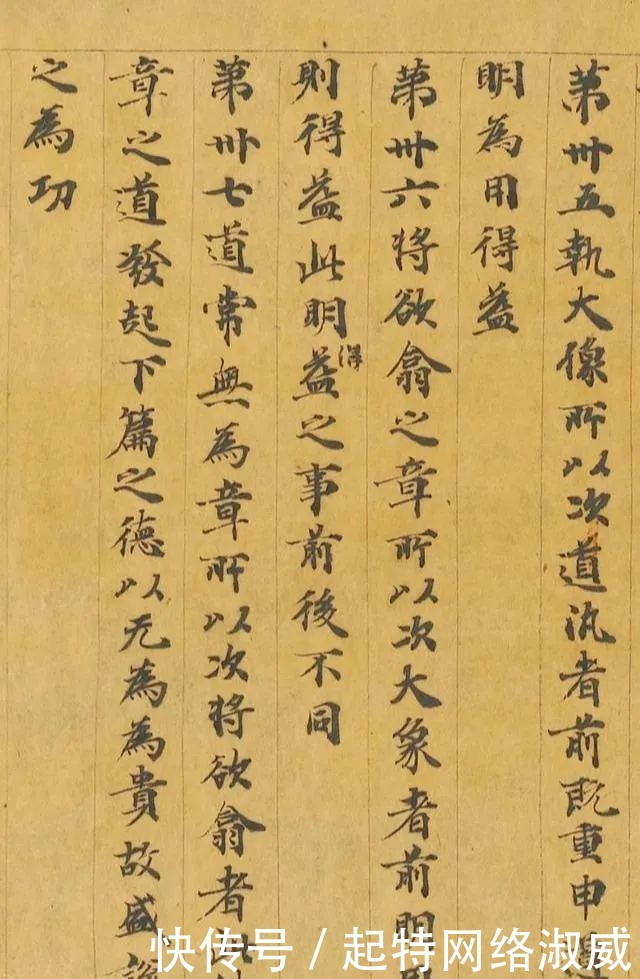 第卅五執大像所以次道汎者前既重申
明為用得益
第卅六將欲翕之章所以次大象者前明
則得益此明益得之事前後不同
第卅七道常無為章所以次將欲翕者
章之道發起下篇之德以无為為貴故盛
之為功
快传号/起特网络淑威